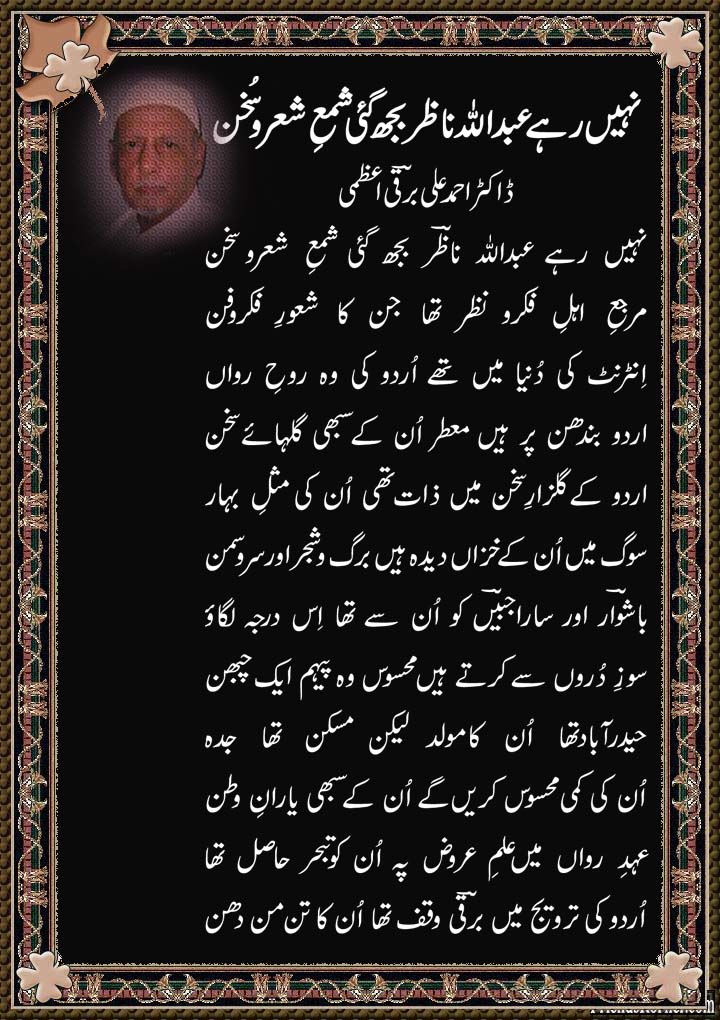 نہیں رہے عبداللہ ناظر بجھ گئی شمعِ شعر و سُخن
ڈاکٹر احمد علی برقیؔ اعظمی
نہیں رہے عبداللہ ناظرؔ بجھ گئی شمعِ شعر و سخن
مرجعِ اہلِ فکر و نظر تھا جن کا شعورِ فکر و فن
اِنٹرنٹ کی دُنیا میں تھے اُردو کی وہ روحِ رواں
اردو بندھن پر ہیں معطر اُن کے سبھی گلہائے سخن
اردو کے گلزارِ سخن میں ذات تھی اُن کی مثلِ بہار
سوگ میں اُن کے خزاں دیدہ ہیں برگ و شجر اور سرو و سمن
باشوارؔ اور سارا جبیںؔ کو اُن سے تھا اِس درجہ لگاؤ
سوزِ دُروں سے کرتے ہیں محسوس وہ پیہم ایک چبھن
حیدرآباد تھا اُن کا مولد لیکن مسکن تھا جدہ
اُن کی کمی محسوس کریں گے اُن کے سبھی یارانِ وطن
عہدِ رواں میں علمِ عروض پہ اُن کو تبحر حاصل تھا
اُردو کی ترویج میں برقیؔ وقف تھا اُن کا تن من دھن